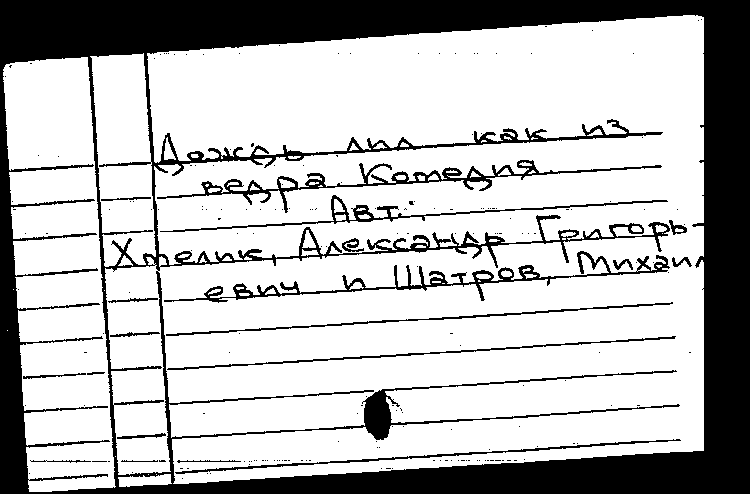 Дождь лил как из
ведра. Комедия.
Авт.:
Хмелик, Александр Григорь-
евич и Шатров, Михаил